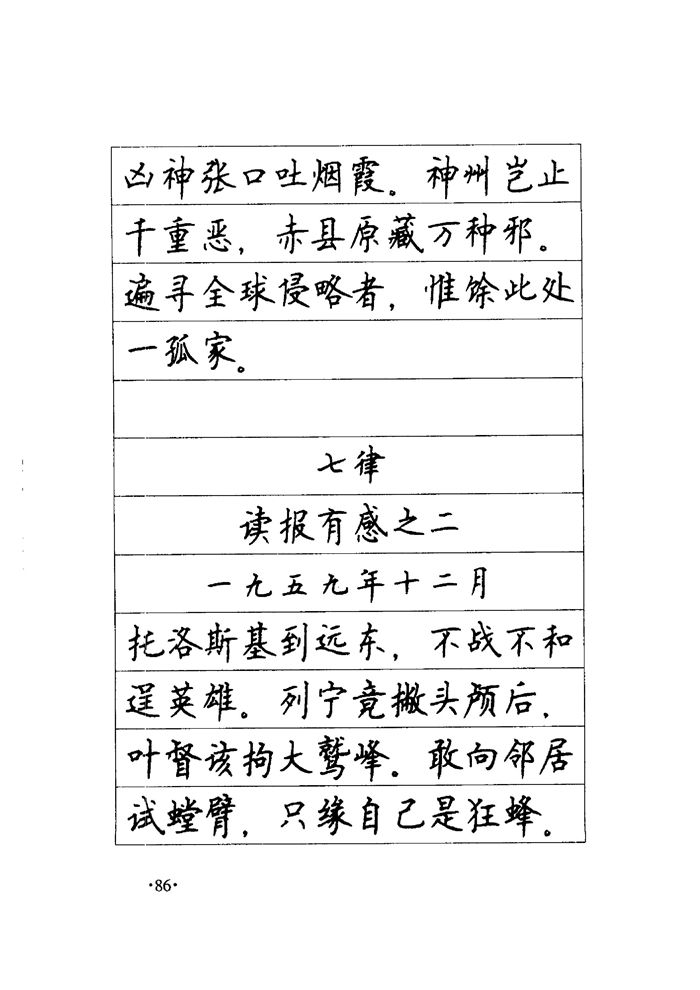 凶神张口吐烟霞。神州岂止
千重恶，赤县原藏万种邪。
遍寻全球侵略者，惟馀此处
一孤家。
七律
读报有感之二
一九五九年十二月
托洛斯基到远东，不战不和
逞英雄。列宁竟撇头颅后，
叶督该拘大鹫峰。敢向邻居
试螳臂，只缘自己是狂蜂。
·86·